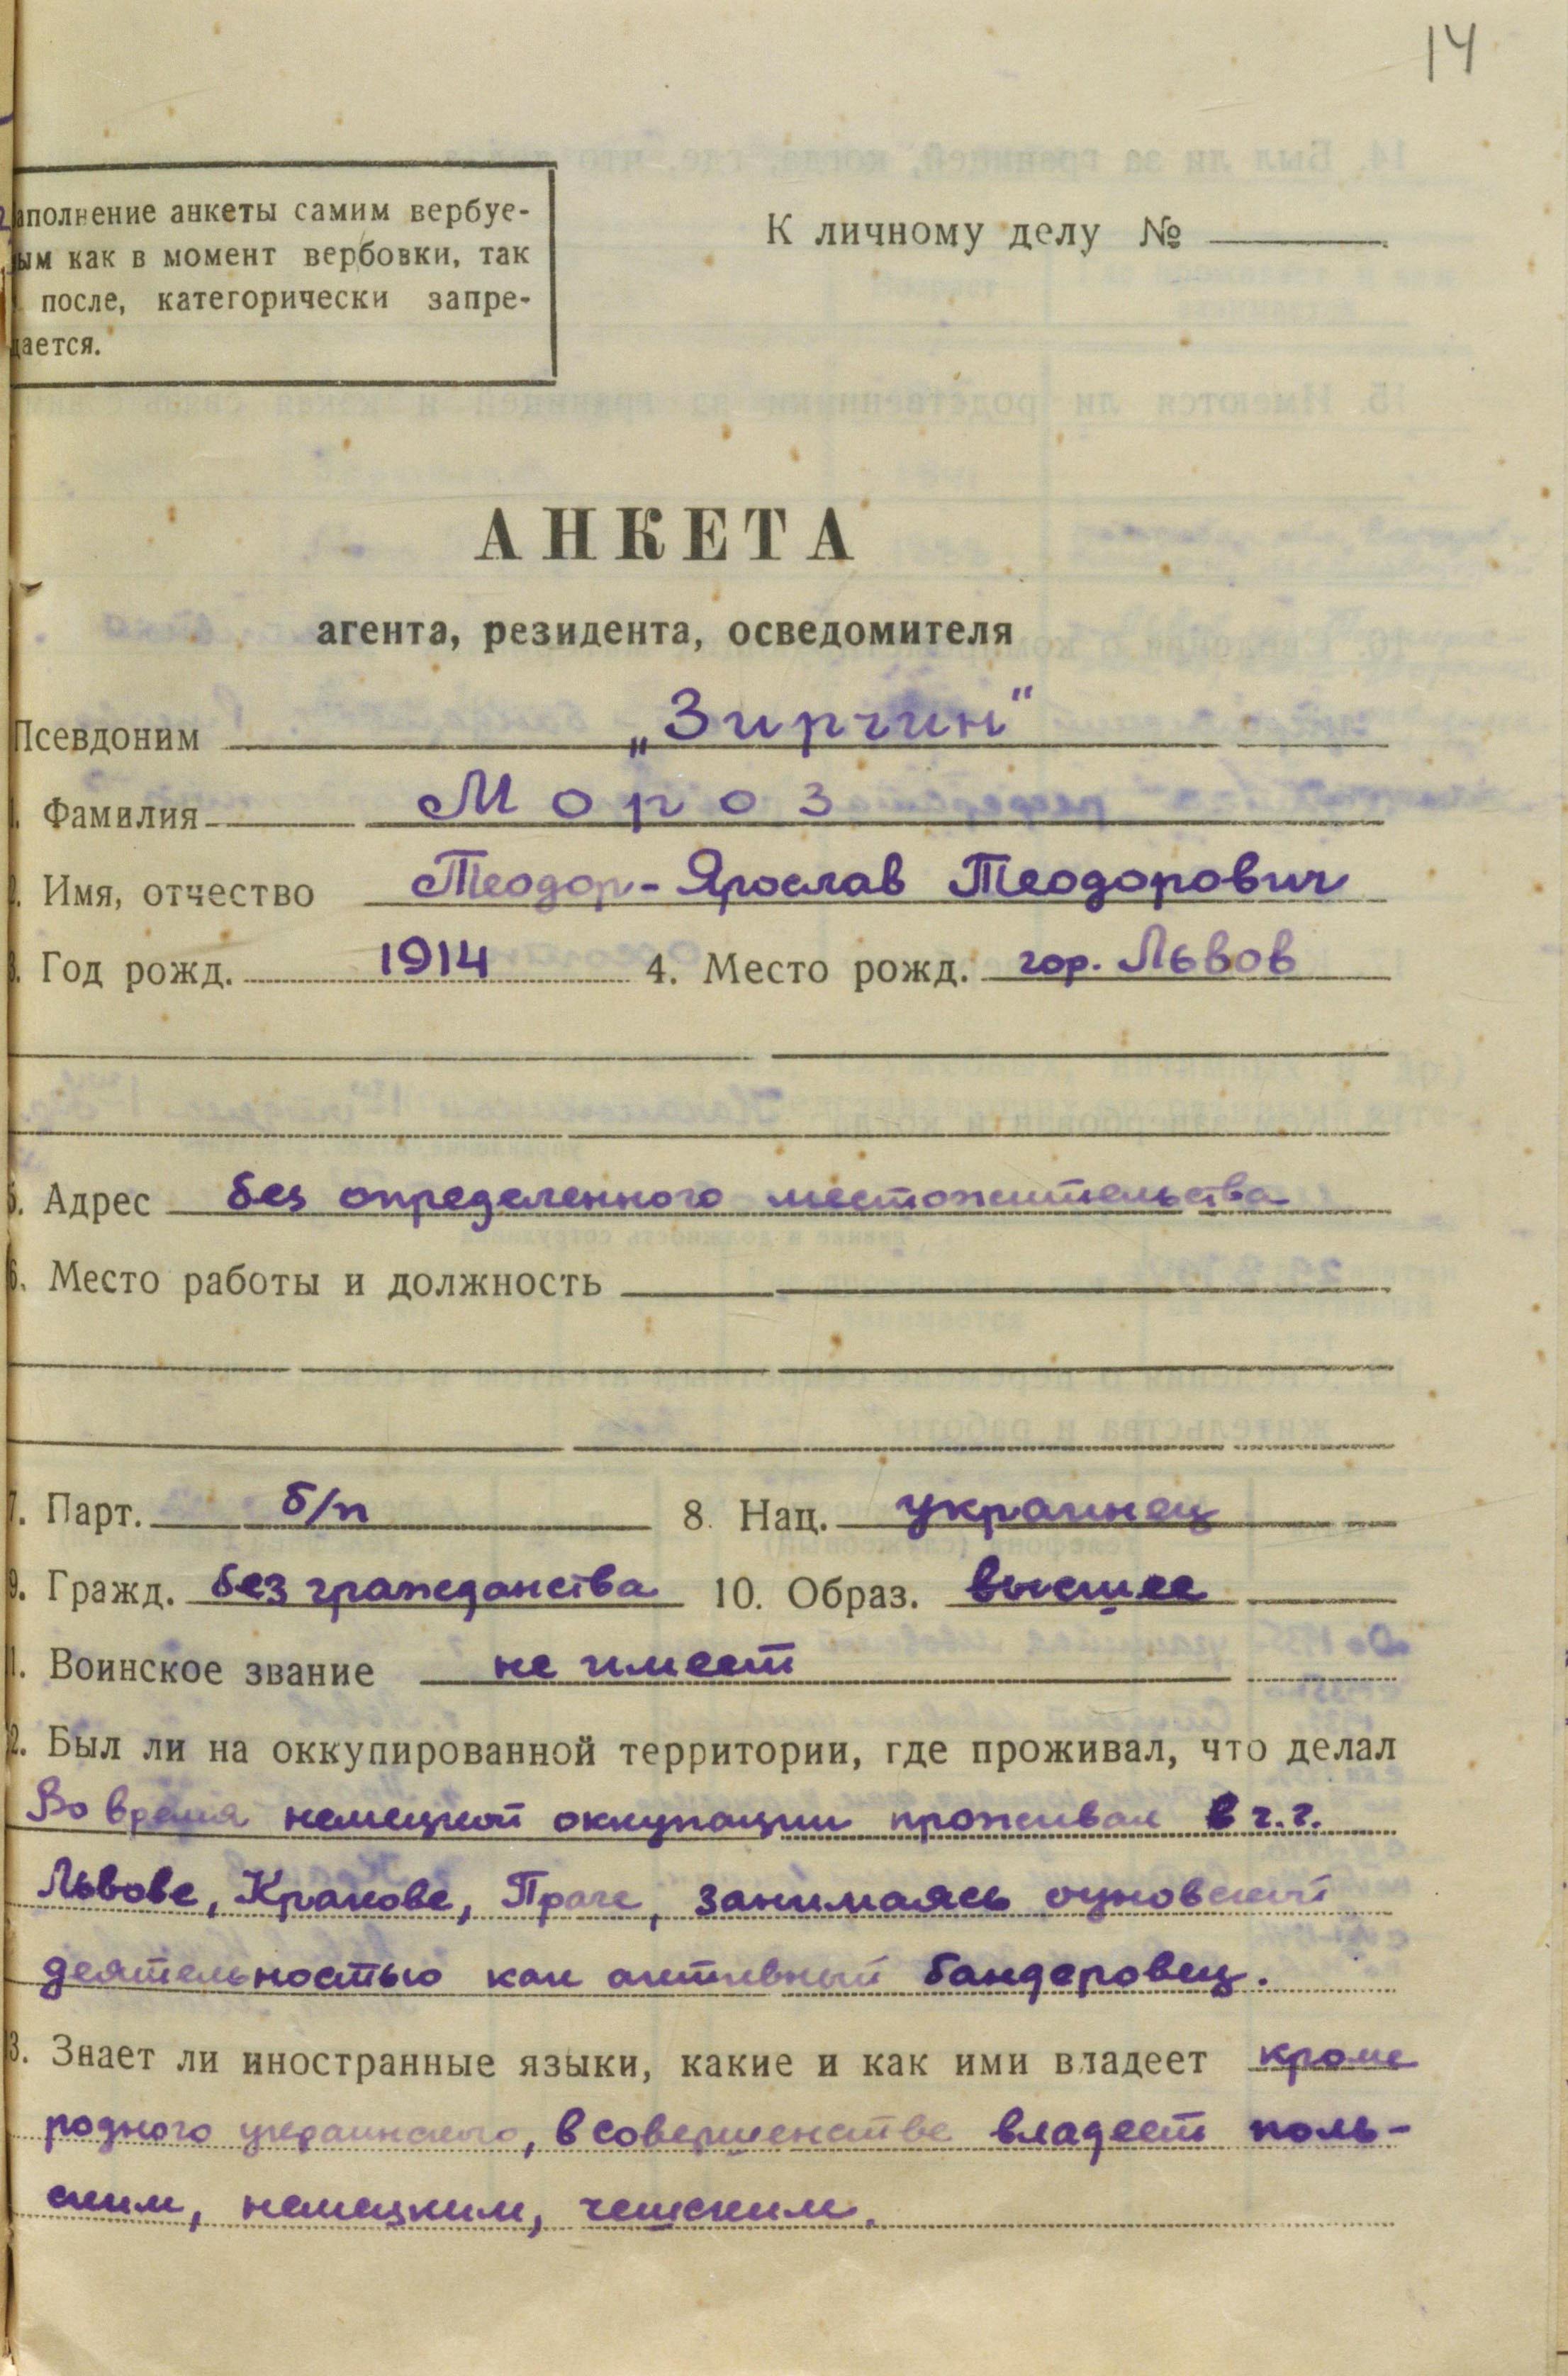 14
аполнение анкеты самим вербуе-
ым как в момент вербовки, так
после, категорически запре-
ается.
К личному делу №
АНКЕТА
агента, резидента, осведомителя
Псевдоним „Зирчин“
Фамилия Мороз
Имя, отчество Теодор-Ярослав Теодорович
Год рожд. 1914 4. Место рожд. гор. Львов
5. Адрес без определенного местожительства
6. Место работы и должность
7. Парт. б/п 8. Нац. украинец
9. Гражд. без гражданства 10. Образ. высшее
1. Воинское звание не имеет
2. Был ли на оккупированной территории, где проживал, что делал
Во время немецкой оккупации проживал в г.г.
Львове, Кракове, Праге, занимаясь оуновской
деятельностью как активный бандеровец.
3. Знает ли иностранные языки, какие и как ими владеет кроме
родного украинского, в совершенстве владеет поль-
ским, немецким, чешским.